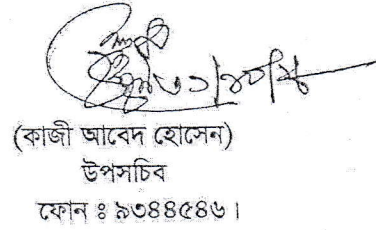 (কাজী আবেদ হোসেন)
উপসচিব
ফোন ঃ ৯৩৪৪৫৪৬।